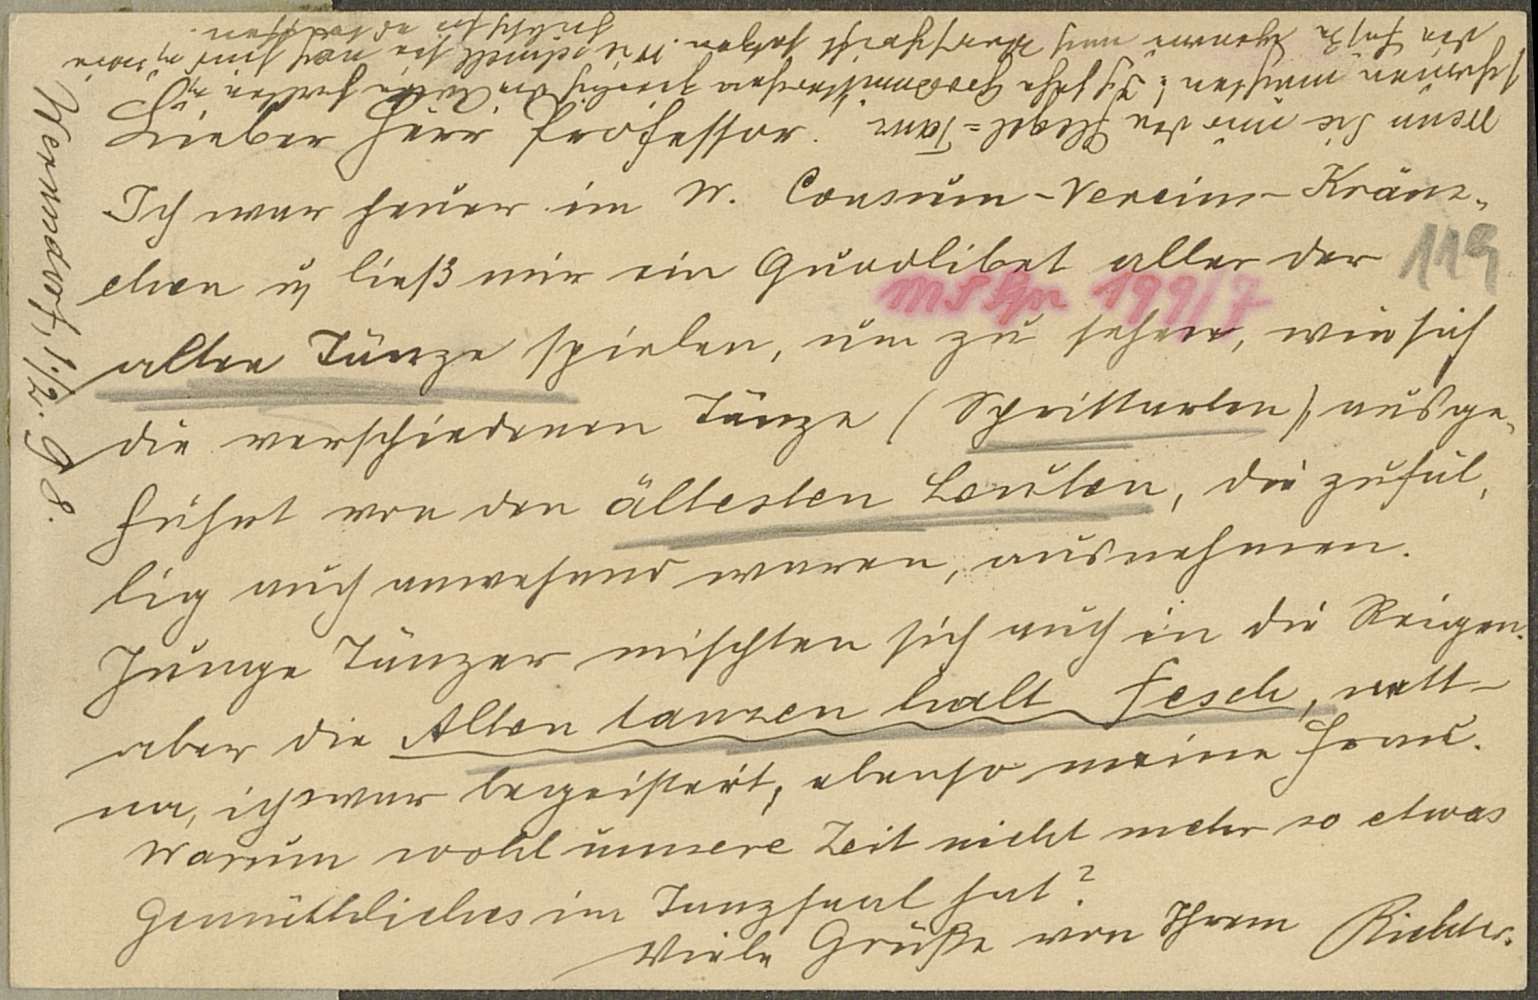 Wernsdorf, 1./2. 98.
Lieber Herr Professor.
Ich war heuer im W. Consum-Vereins-Kränz-
chen u. ließ mir ein Quodlibet aller der
alten Tänze spielen, um zu sehen, wie sich
die verschiedenen Tänze (Schrittarten), ausge-
führt von den ältesten Leuten, die zufäl-
lig auch anwesend waren, ausnehmen.
Junge Tänzer mischten sich auch in die Reigen.
aber die Alten tanzen halt fesch, nett-
na, ich war begeistert, ebenso meine Frau.
Warum wohl unsere Zeit nicht mehr so etwas
Gemüthliches im Tanzsaal hat?
Viele Grüße von Ihrem Richter.
wenn Sie mir den Kegel-Tanz
119